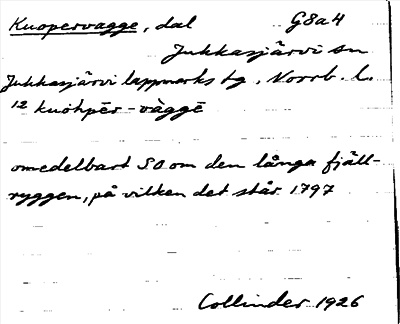 Kuopervagge, dal G8a4
Jukkasjärvi sn
Jukkasjärvi lappmarks tg, Norrb. l.
12 kuohpēr-vàggē
omedelbart SO om den långa fjäll-
ryggen, på vilken det står 1797
Collinder 1926